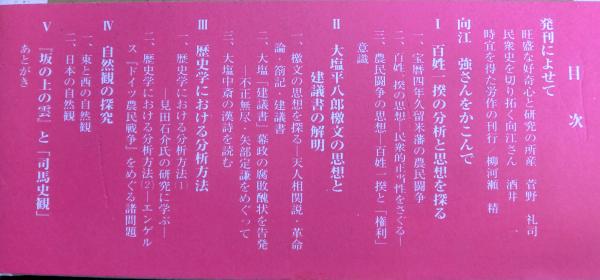 目次
発刊によせて
旺盛な好奇心と研究の所産 菅野 礼司
民衆史を切り拓く向江さん 酒井 一
時宜を得た労作の刊行 柳河瀬 精
向江 強さんをかこんで
Ⅰ 百姓一揆の分析と思想を探る
一、宝暦四年久留米藩の農民闘争
二、百姓一揆の思想―民衆的正当性をさぐる―
三、農民闘争の思想―百姓一揆と「権利」
意識
Ⅱ 大塩平八郎檄文の思想と
建議書の解明
一、檄文の思想を探る―天人相関説・革命
論・箚記・建議書
二、大塩「建議書」幕政の腐敗醜状を告発
―不正無尽・矢部定謙をめぐって
三、大塩中斎の漢詩を読む
Ⅲ 歴史学における分析方法
一、歴史学における分析方法⑴
―見田石介氏の研究に学ぶ―
二、歴史学における分析方法⑵―エンゲル
ス『ドイツ農民戦争』をめぐる諸問題
Ⅳ 自然観の探究
一、東と西の自然観
二、日本の自然観
Ⅴ 『坂の上の雲』と「司馬史観」
あとがき